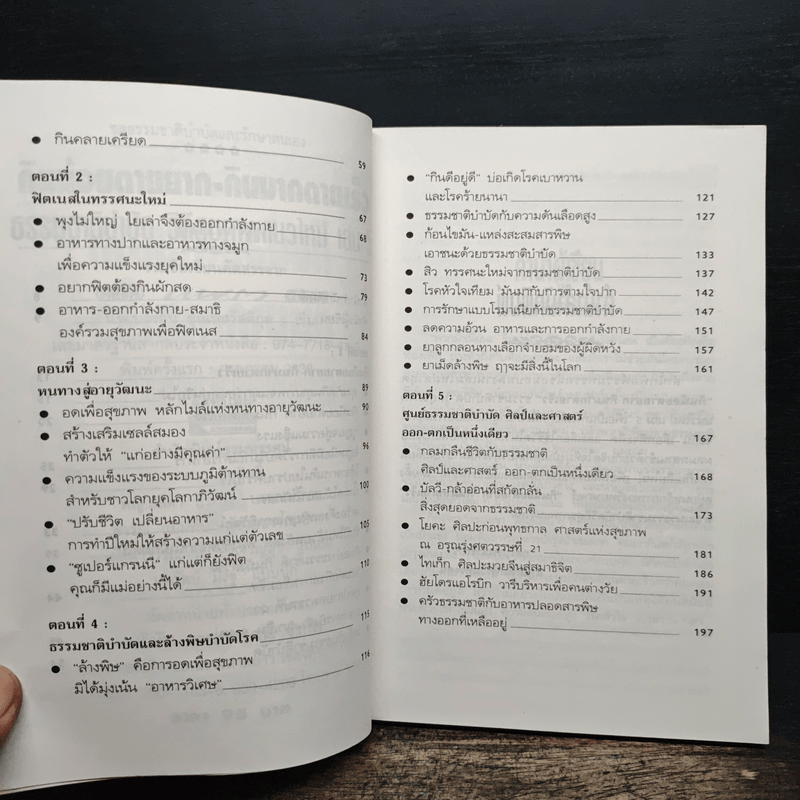 ● กินคลายเครียด 59
ตอนที่ 2 :
ฟิตเนสในทรรศนะใหม่ 67
● พุงไม่ใหญ่ ใยเล่าจึงต้องออกกำลังกาย 68
● อาหารทางปากและอาหารทางจมูก
เพื่อความแข็งแรงยุคใหม่ 73
● อยากฟิตต้องกินผักสด 79
● อาหาร-ออกกำลังกาย-สมาธิ
องค์รวมสุขภาพเพื่อฟิตเนส 84
ตอนที่ 3 :
หนทางสู่อายุวัฒนะ 89
● อดเพื่อสุขภาพ หลักไมล์แห่งหนทางอายุวัฒนะ 90
● สร้างเสริมเซลล์สมอง
ทำตัวให้ "แก่อย่างมีคุณค่า" 96
● ความแข็งแรงของระบบภูมิต้านทาน
สำหรับชาวโลกยุคโลกาภิวัฒน์ 100
● "ปรับชีวิต เปลี่ยนอาหาร"
การทำปีใหม่ให้สร้างความแก่แต่ตัวเลข 105
● "ซูเปอร์แกรนนี" แก่แต่ก็ยังฟิต
คุณก็มีแม่อย่างนี้ได้ 110
ตอนที่ 4 :
ธรรมชาติบำบัดและล้างพิษบำบัดโรค 115
● "ล้างพิษ" คือการอดเพื่อสุขภาพ
มิได้มุ่งเน้น "อาหารวิเศษ" 116
● "กินดีอยู่ดี" บ่อเกิดโรคเบาหวาน
และโรคร้ายนานา 121
● ธรรมชาติบำบัดกับความดันเลือดสูง 127
● ก้อนไขมัน-แหล่งสะสมสารพิษ
เอาชนะด้วยธรรมชาติบำบัด 133
● สิว ทรรศนะใหม่จากธรรมชาติบำบัด 137
● โรคหัวใจเทียม มันมากับการตามใจปาก 142
● การรักษาแบบโรมาเนียกับธรรมชาติบำบัด 147
● ลดความอ้วน อาหารและการออกกำลังกาย 151
● ยาลูกกลอนทางเลือกจำยอมของผู้ผิดหวัง 157
● ยาเม็ดล้างพิษ ฤาจะมีสิ่งนี้ในโลก 161
ตอนที่ 5 :
ศูนย์ธรรมชาติบำบัด ศิลป์และศาสตร์
ออก-ตกเป็นหนึ่งเดียว 167
● กลมกลืนชีวิตกับธรรมชาติ
ศิลป์และศาสตร์ ออก-ตกเป็นหนึ่งเดียว 168
● บัลวี-กล้าอ่อนที่สกัดกลั่น
สิ่งสุดยอดจากธรรมชาติ 173
● โยคะ ศิลปะก่อนพุทธกาล ศาสตร์แห่งสุขภาพ
ณ อรุณรุ่งศตวรรษที่ 21 181
● ไทเก็ก ศิลปะมวยจีนสู่สมาธิจิต 186
● ฮัยโดรแอโรบิก วารีบริหารเพื่อคนต่างวัย 191
● ครัวธรรมชาติกับอาหารปลอดสารพิษ
ทางออกที่เหลืออยู่ 197